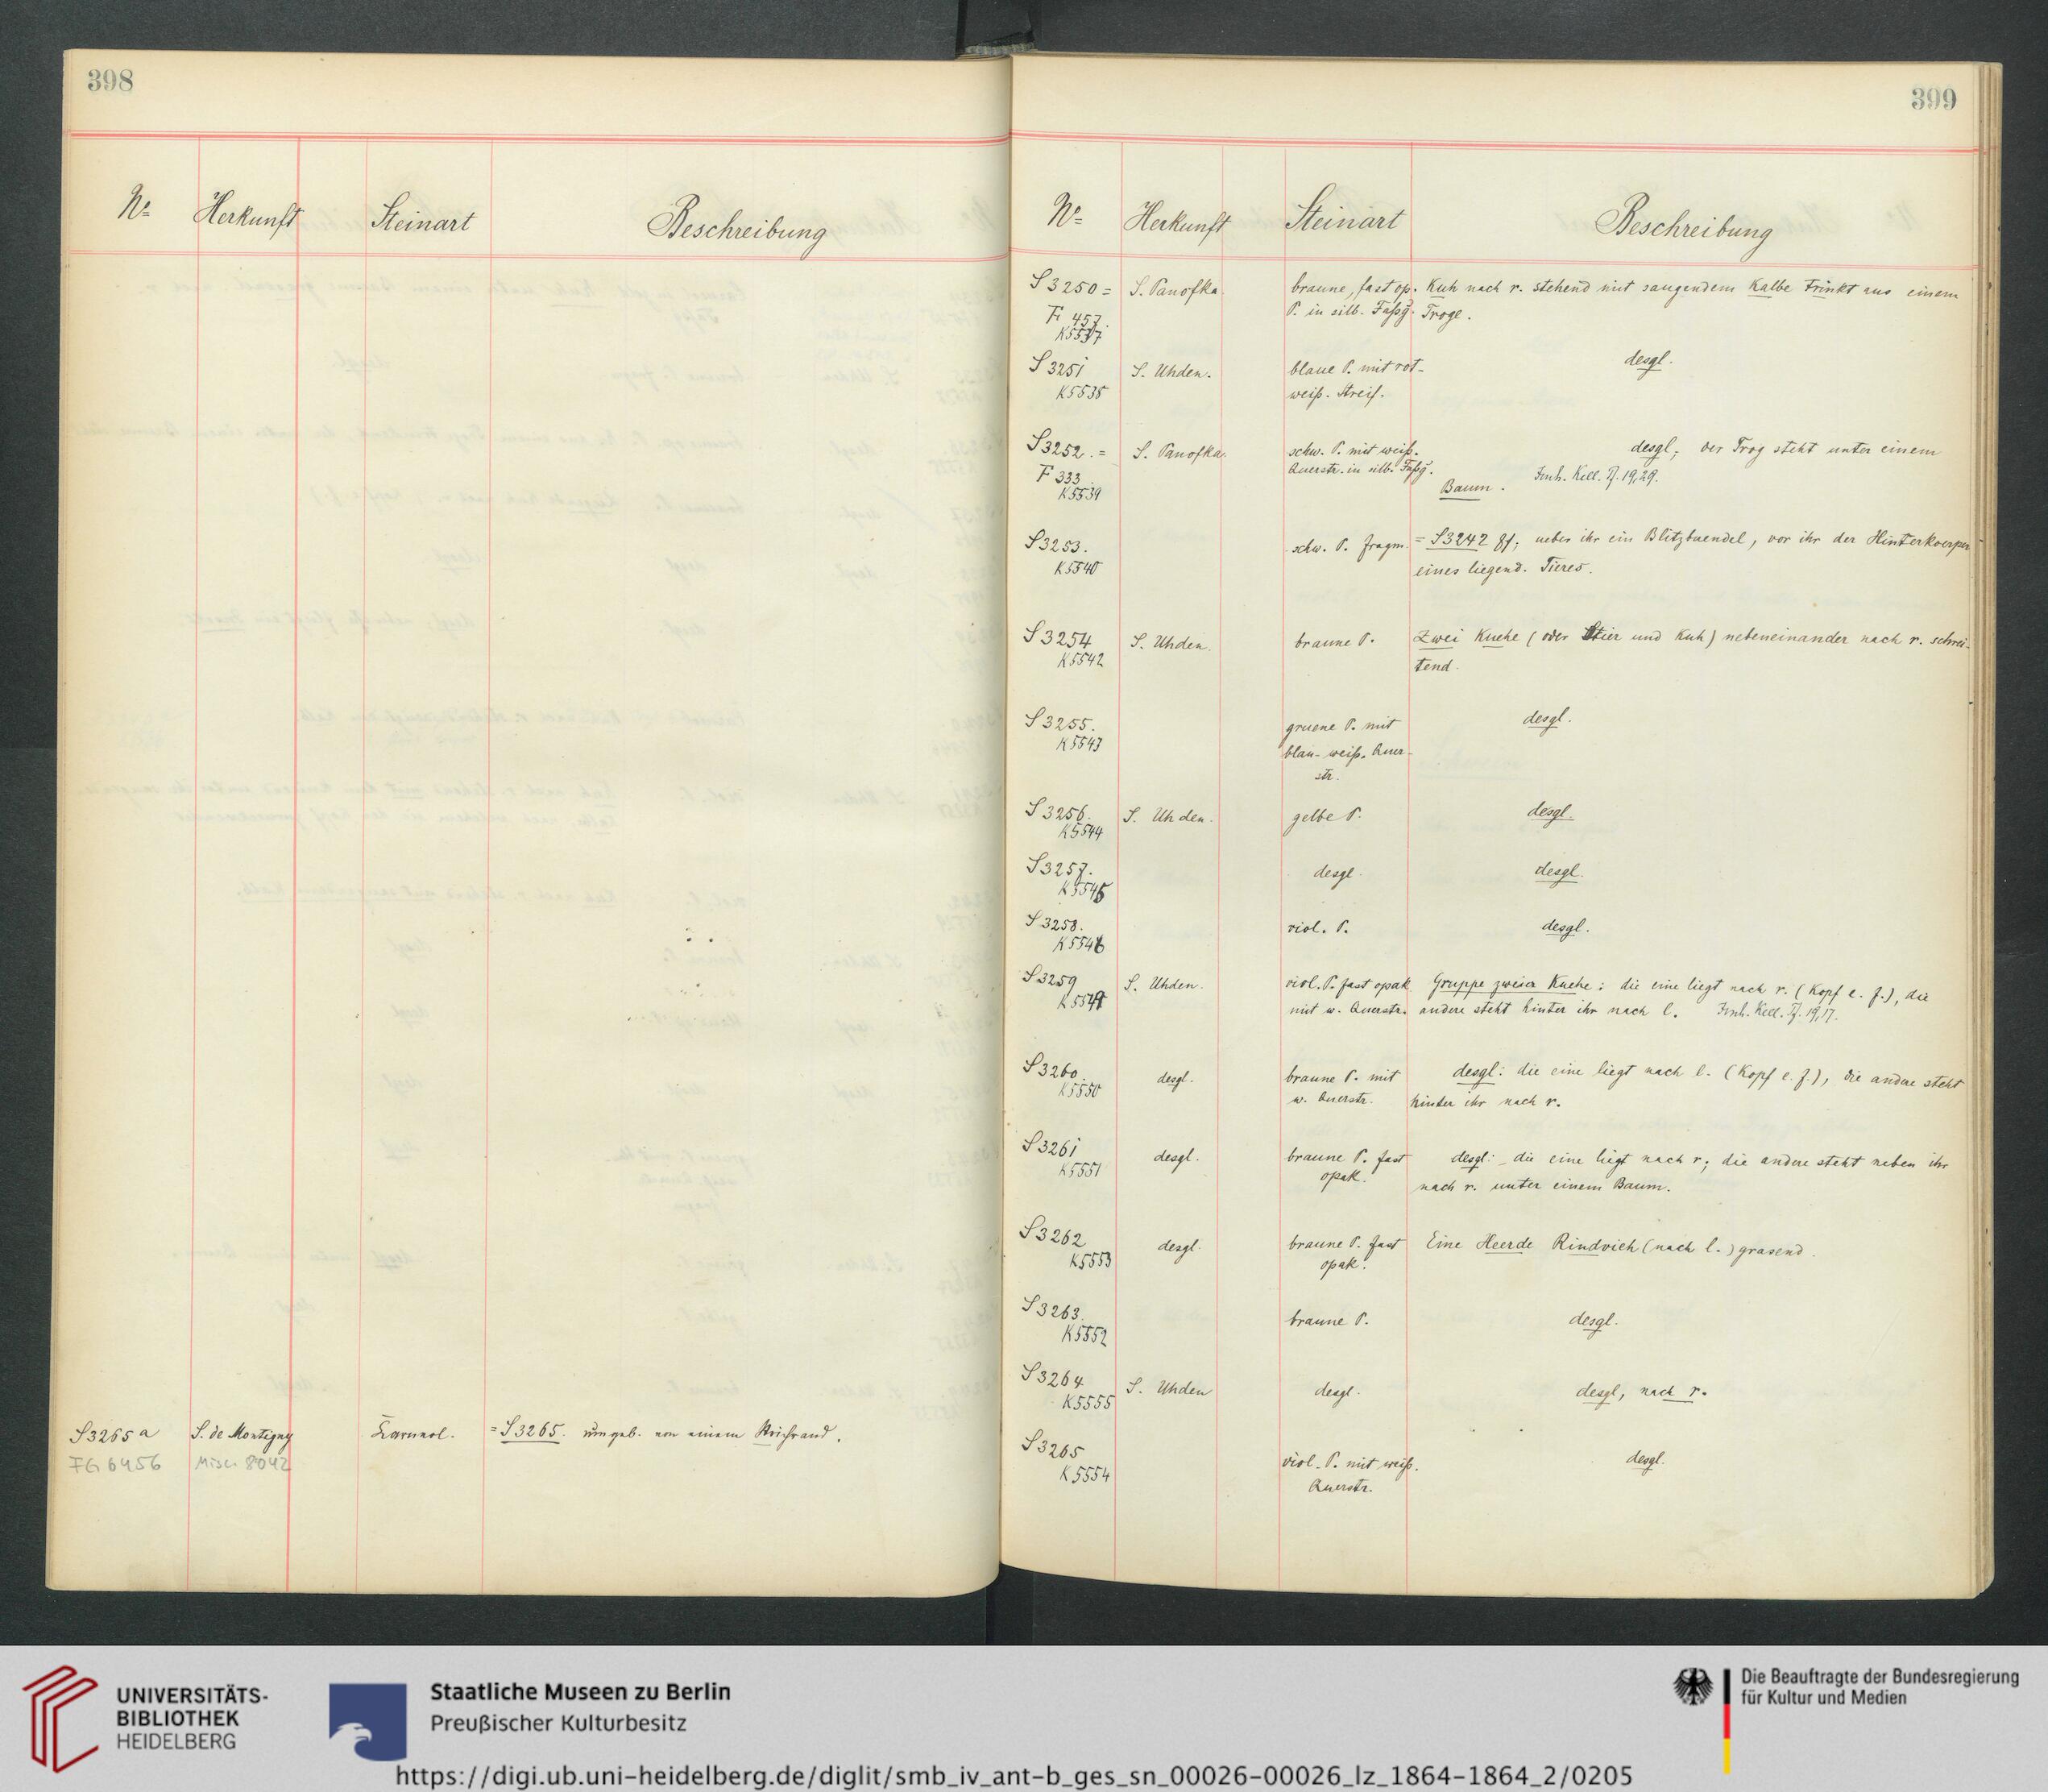 398
Nº Herkunft Steinart Beschreibung
S3265a S. de Montigny Karneol. = S3265. umgeb. von einem Strichrand.
FG 6456 Misc. 8042
399
Nº Herkunft Steinart Beschreibung
S3250 = S. Panofka. braune, fast op. Kuh nach r. stehend mit saugendem Kalbe trinkt aus einem
F. 457. P. in silb. Fassg. Troge.
K5537
S3251 S. Uhden. blaue P. mit rot- desgl.
K5535 weiß. Streif.
S3252. = S. Panofka. schw. P. mit weiß. desgl; der Trog steht unter einem
F 333 Querstr. in silb. Fassg.
K5539 Baum. Imh. Kell. Tf. 19,29.
S3253. schw. P. fragm. = S3242 ff; ueber ihr ein Blitzbuendel, vor ihr der Hinterkoerper
K5540 eines liegend. Tieres.
S3254 S. Uhden. braune P. Zwei Kuehe (oder Stier und Kuh) nebeneinander nach r. schrei-
K5542 tend.
S3255. gruene P. mit desgl.
K5543 blau-weiß. Quer-
str.
S3256. S. Uhden. gelbe P. desgl.
K5544
S3257. desgl. desgl.
K5545
S3258. viol. P. desgl.
K5546
S3259 S. Uhden. viol. P. fast opak Gruppe zweier Kuehe: die eine liegt nach r. (Kopf e. f.), die
K5549 mit w. Querstr. andere steht hinter ihr nach l. Imh. Kell. Tf. 19,17.
S3260. desgl. braune P. mit desgl: die eine liegt nach l. (Kopf e. f.), die andere steht
K5550 w. Querstr. hinter ihr nach r.
S3261 desgl. braune P. fast desgl: die eine liegt nach r; die andere steht neben ihr
K5551 opak. nach r. unter einem Baum.
S3262 desgl. braune P. fast Eine Heerde Rindvieh (nach l.) grasend.
K5553 opak.
S3263. braune P. desgl.
K5552
S3264 S. Uhden desgl. desgl, nach r.
K5555
S3265 viol. P. mit weiß. desgl.
K5554 Querstr.
UNIVERSITÄTS-
BIBLIOTHEK
HEIDELBERG
Staatliche Museen zu Berlin
Preußischer Kulturbesitz
Die Beauftragte der Bundesregierung
für Kultur und Medien
https://digi.ub.uni-heidelberg.de/diglit/smb_iv_ant-b_ges_sn_00026-00026_lz_1864-1864_2/0205